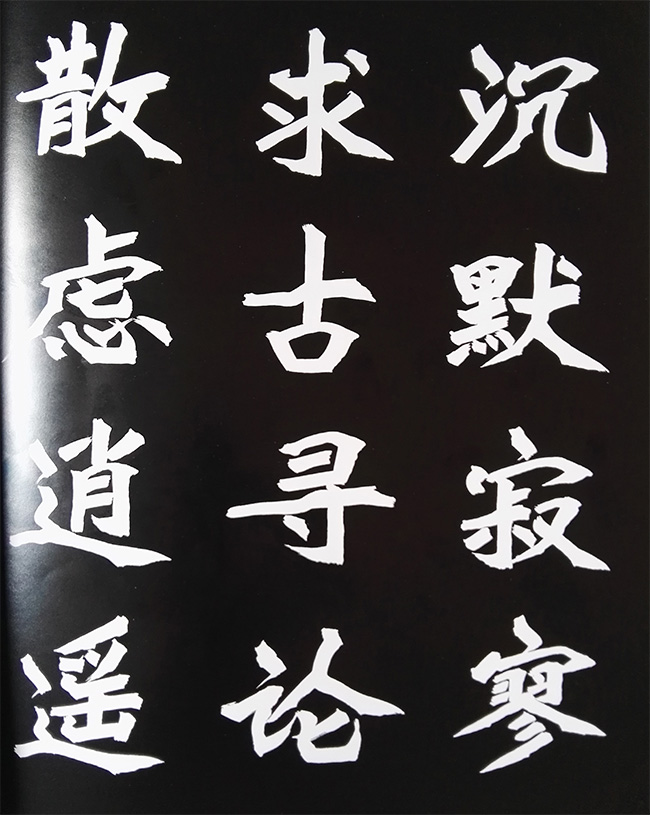 沉默寂寥
求古寻论
散虑逍遥